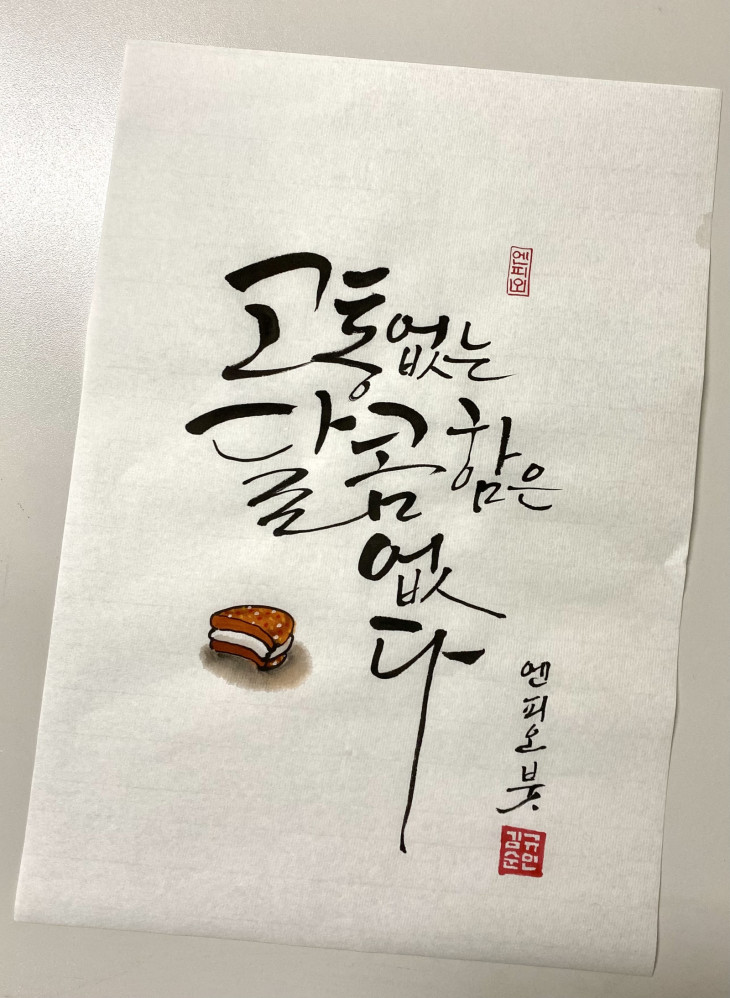 엔피오
고통없는
달콤함은
없
다
엔피오 붓
김규
순인